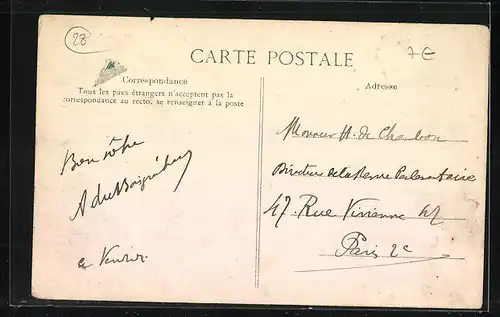 28
7€
CARTE POSTALE
Correspondance
Tous les pays étrangers n'acceptent pas la
correspondance au recto, se renseigner à la poste
Adresse
Bien vôtre
Monsieur H. de Chambon
Directeur de la Revue Parlementaire
47 Rue Vivienne 47
Paris 2e